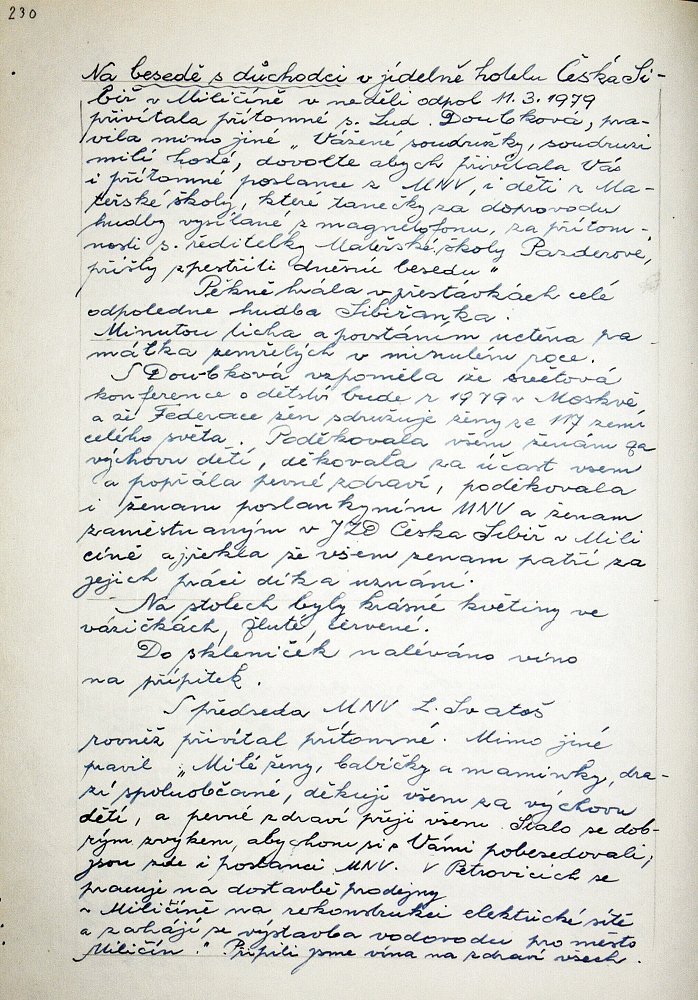 230
Na besedě s důchodci v jídelně hotelu Česká Si-
biř v Miličíně v neděli odpol 11.3.1979
přivítala přítomné s. Lud. Doubková, pra-
vila mimo jiné „Vážené soudružky, soudruzi
milí hosté, dovolte abych přivítala Vás
i přítomné poslance z MNV, i děti z Ma-
teřské školy, které tanečky za doprovodu
hudby vysílané z magnetofonu, za přítom-
nosti s. ředitelky Mateřské školy Pazderové,
přišly zpestřiti dnešní besedu"
Pěkně hrála v přestávkách celé
odpoledne hudba Sibiřanka.
Minutou ticha a povstáním uctěna pa
mátka zemřelých v minulém roce.
S Doubková vzpoměla že světová
konference o dětství bude r 1979 v Moskvě,
a že Federace žen sdružuje ženy ze 117 zemí
celého světa. Poděkovala všem ženám za
výchovu dětí, děkovala za účast všem
a popřála pevné zdraví, poděkovala
i ženam poslankyním MNV a ženam
zaměstnaným v JZD Česka Sibiř v Mili
číně a řekla že všem ženam patří za
jejich práci dík a uznání.
Na stolech byly krásné květiny ve
vázičkách, žluté, červené.
Do skleniček naléváno víno
na přípitek.
S předseda MNV L. Svatoš
rovněž přivítal přítomné. Mimo jiné
pravil „Milé ženy, babičky a maminky, dra-
zí spoluobčané, děkuji všem za výchovu
dětí, a pevné zdraví přeji všem. Stalo se dob-
rým zvykem, abychom si s Vámi pobesedovali,
jsou zde i poslanci MNV. V Petrovicích se
pracuje na dostavbě prodejny
v Miličíně na rekonstrukci elektrické sítě
a zahájí se výstavba vodovodu pro město
Miličín." Připili jsme vína na zdraví všech.